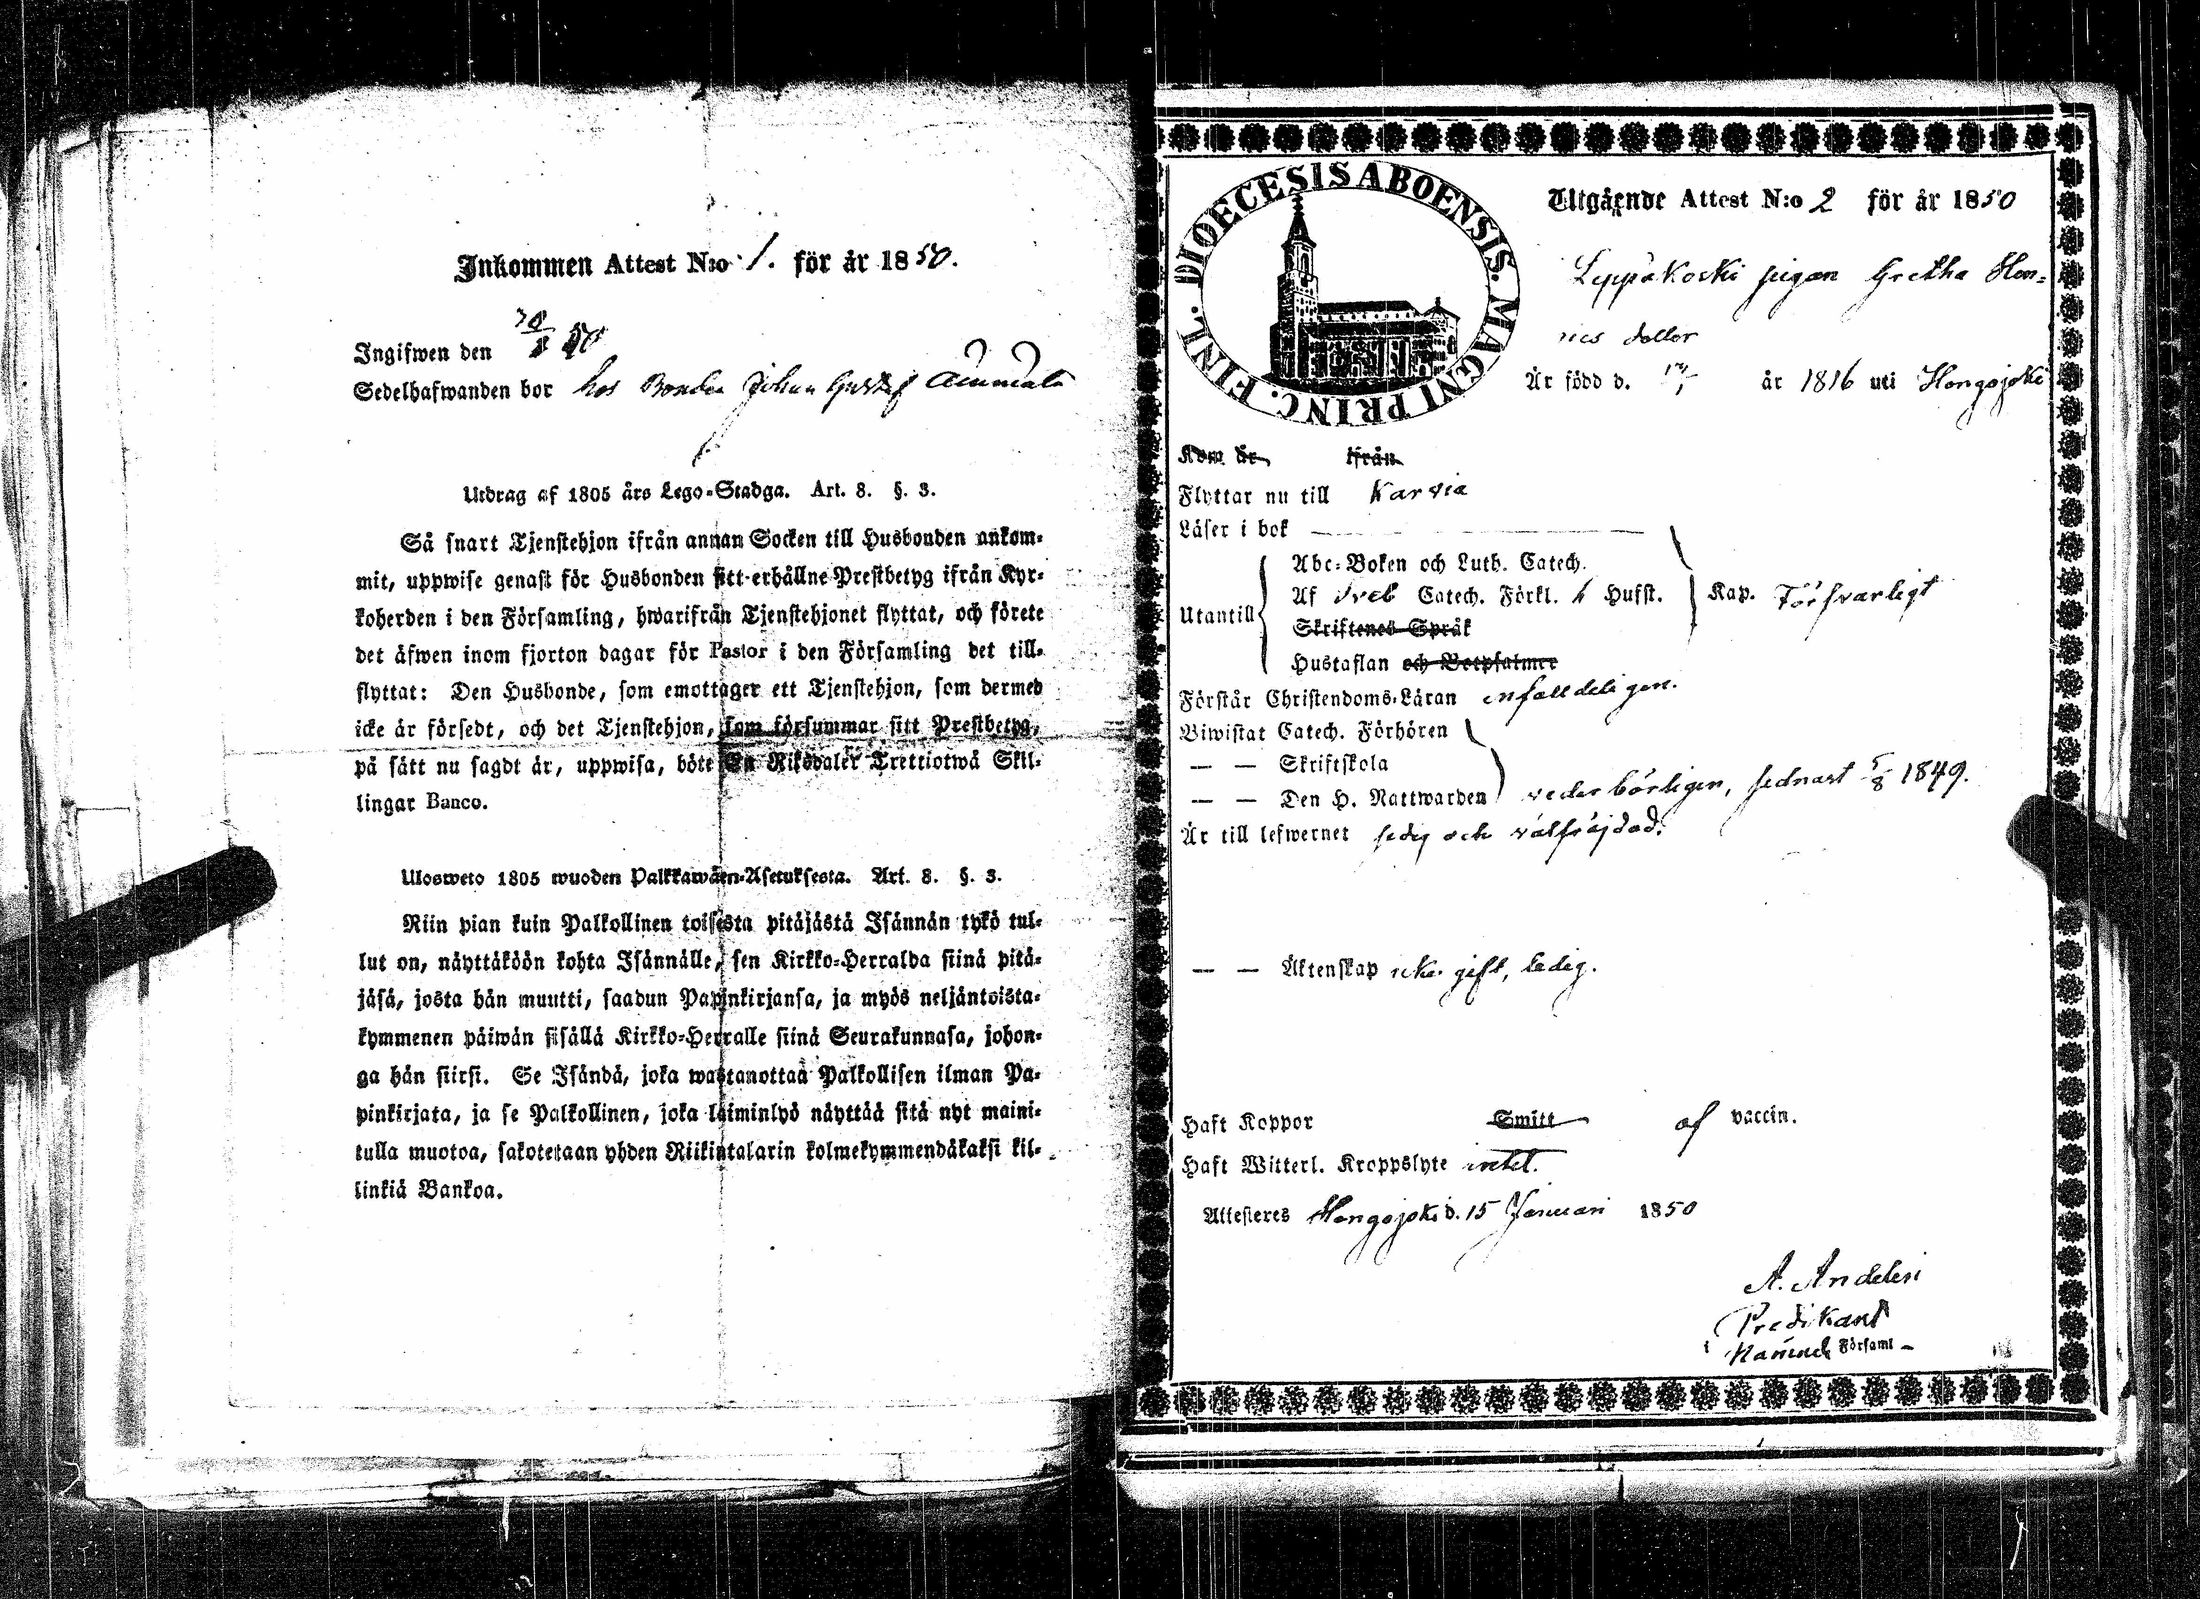 Inkommen Attest N:o 1. för år 1850.
Ingifwen den
Sedelhafwanden bor hos Bonden Johan Gustaf
Utdrag af 1805 års Lego-Stadga. Art. 8. §. 3.
Så snart Tjenstehjon ifrån annan Socken till Husbonden ankom-
mit, uppwise genast för Husbonden sitt erhållne Prestbetyg ifrån Kyr-
koherden i den Församling, hwarifrån Tjenstehjonet flyttat, och förete
det äfwen inom fjorton dagar för Pastor i den Församling det till-
flyttat: Den Husbonde, som emottager ett Tjenstehjon, som dermed
icke är försedt, och det Tjenstehjon, som försummar sitt Prestbetyg,
på sätt nu sagdt är, uppwisa, böte En Riksdaler Trettiotwå Skil-
lingar Banco.
Ulosweto 1805 wuoden Palkkawäen-Asetuksesta. Art. 8. §. 3.
Niin pian kuin Palkollinen toisesta pitäjästä Isännän tykö tul-
lut on, näyttäköön kohta Isännälle, sen Kirkko-Herralda siinä pitä-
jäsä, josta hän muutti, saadun Papinkirjansa, ja myös neljäntoista-
kymmenen päiwän sisällä Kirkko-Herralle siinä Seurakunnasa, johon-
ga hän siirsi. Se Isändä, joka wastanottaa Palkollisen ilman Pa-
pinkirjata, ja se Palkollinen, joka laiminlyö näyttää sitä nyt maini-
tulla muotoa, sakotetaan yhden Riikintalarin kolmekymmendäkaksi kil-
linkiä Bankoa.
DIOECESIS ABOENSIS. MAGNI PRINC. FINL.
Utgående Attest N:o 2 för år 1850
Leppäkoski pigan Gretha Hen-
rics dotter
Är född d. år 1816 uti Hongojoki
Kom år ifrån
Flyttar nu till Karvia
Läser i bok
Abc-Boken och Luth. Catech.
Utantill Af Sveb Catech. Förkl. Hufst. Kap. Försvarligt
Skriftenes Språk
Hustaflan och Botpsalmer
Förstår Christendoms-Läran enfalldeligen.
Biwistat Catech. Förhören
— — Skriftskola
— — Den H. Nattwarden vederbörligen, sednast 5/8 1849.
Är till lefwernet sedig och välfräjdad.
— — Äktenskap icke gift, ledig.
Haft Koppor Smitt af vaccin.
Haft Witterl. Kroppslyte intet.
Attesteres Hongojoki d. 15 Januari 1850
A.
Predikant
i Nämnde Församl